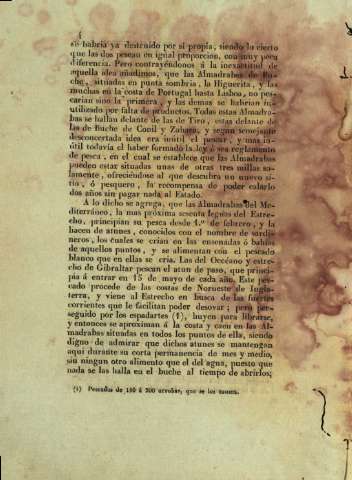 4
se habria ya destruido por sí propia, siendo lo cierto
que las dos pescan en igual proporcion, con muy poca
diferencia. Pero contrayéndonos á la inexactitud de
aquella idea añadimos, que las Almadrabas de Bu-
che, situadas en punta sombria, la Higuerita, y las
muchas en la costa de Portugal hasta Lisboa, no pes-
carian sino la primera, y las demas se habrian in-
utilizado por falta de productos. Todas estas Almadra-
bas se hallan delante de las de Tiro, estas delante de
las de Buche de Conil y Zahara, y segun semejante
desconcertada idea era inútil el pescar, y mas in-
útil todavía el haber formado la ley ó sea reglamento
de pesca, en el cual se establece que las Almadrabas
pueden estar situadas unas de otras tres millas so-
lamente, ofreciéndose al que descubra un nuevo si-
tio, ó pesquero, la recompensa de poder calarlo
dos años sin pagar nada al Estado.
A lo dicho se agrega, que las Almadrabas del Me-
diterráneo, la mas próxima sesenta leguas del Estre-
cho, principian su pesca desde 1.º de febrero, y la
hacen de atunes, conocidos con el nombre de sardi-
neros, los cuales se crian en las ensenadas ó bahías
de aquellos puntos, y se alimentan con el pescado
blanco que en ellas se cria. Las del Occéano y estre-
cho de Gibraltar pescan el atun de paso, que princi-
pia á entrar en 15 de mayo de cada año. Este pes-
cado procede de las costas de Norueste de Ingla-
terra, y viene al Estrecho en busca de las fuertes
corrientes que le facilitan poder desovar; pero per-
seguido por los espadartes (1), huyen para librarse,
y entonces se aproximan á la costa y caen en las Al-
madrabas situadas en todos los puntos de ella, siendo
digno de admirar que dichos atunes se mantengan
aqui durante su corta permanencia de mes y medio,
sin ningun otro alimento que el del agua, puesto que
nada se las halla en el buche al tiempo de abrirlos;
(1) Pescados de 150 á 200 arrobas, que se los comen.